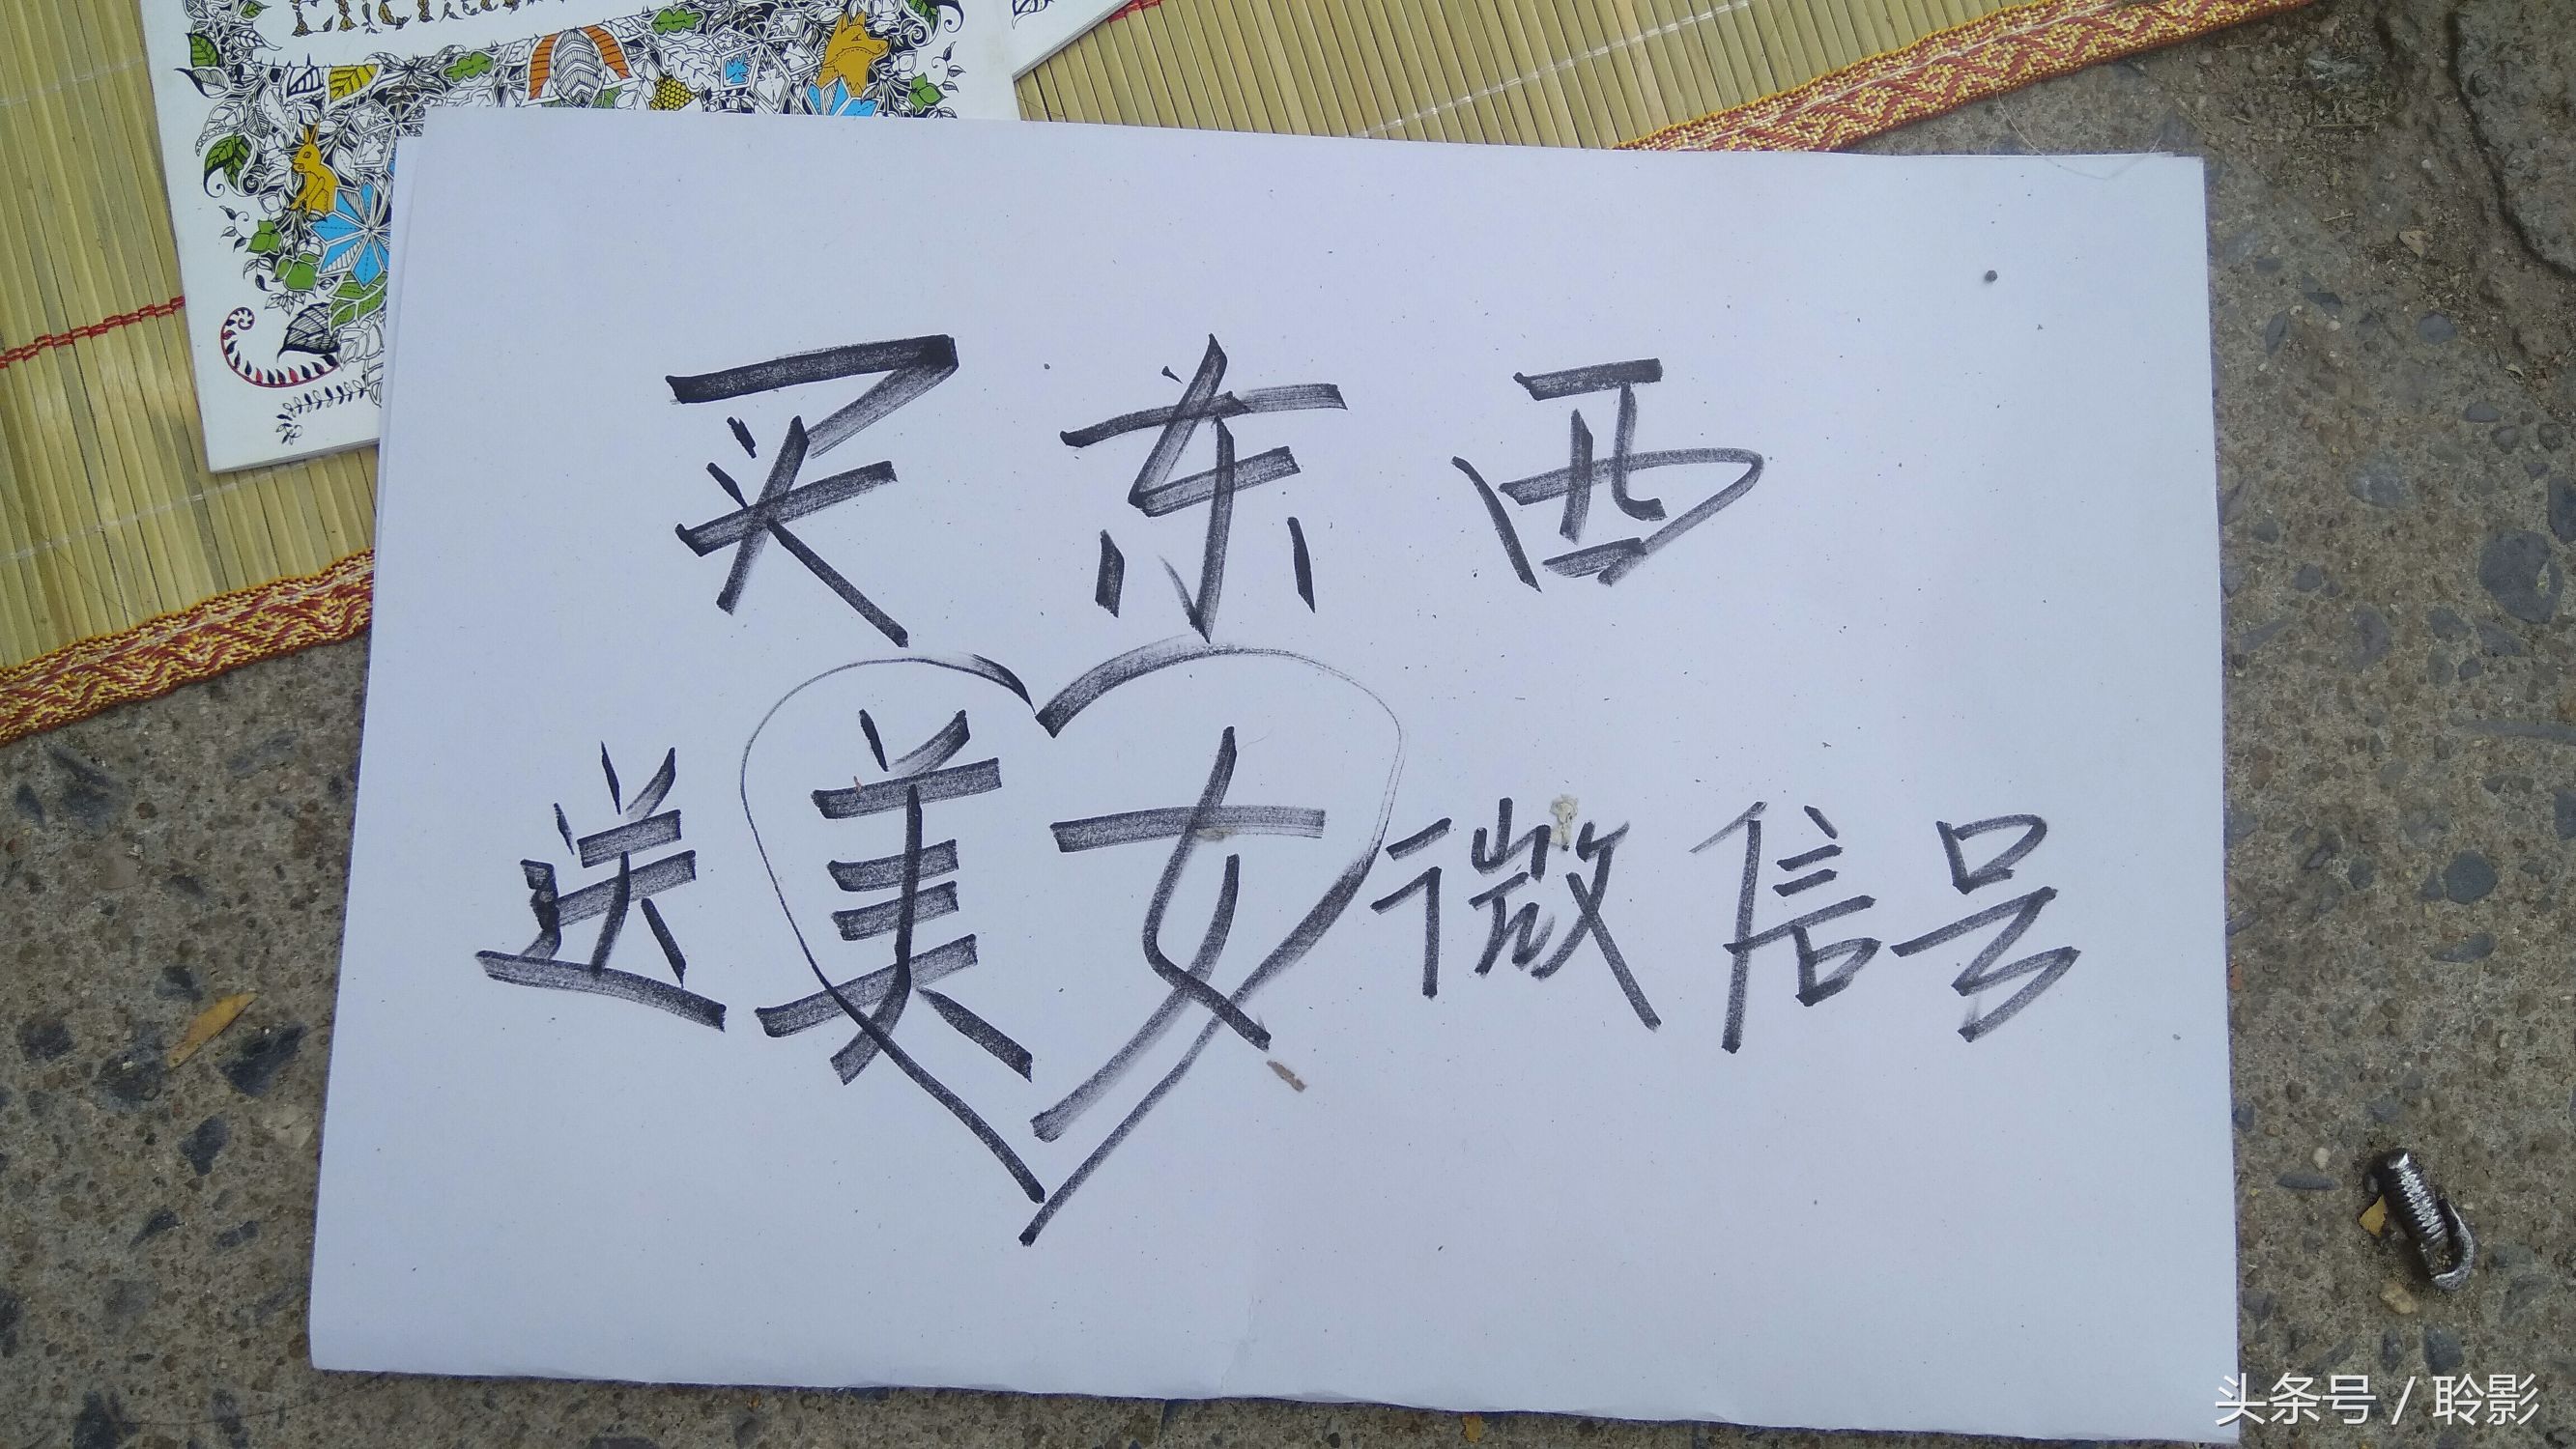 买东西
送美女微信号
头条号 / 聆影